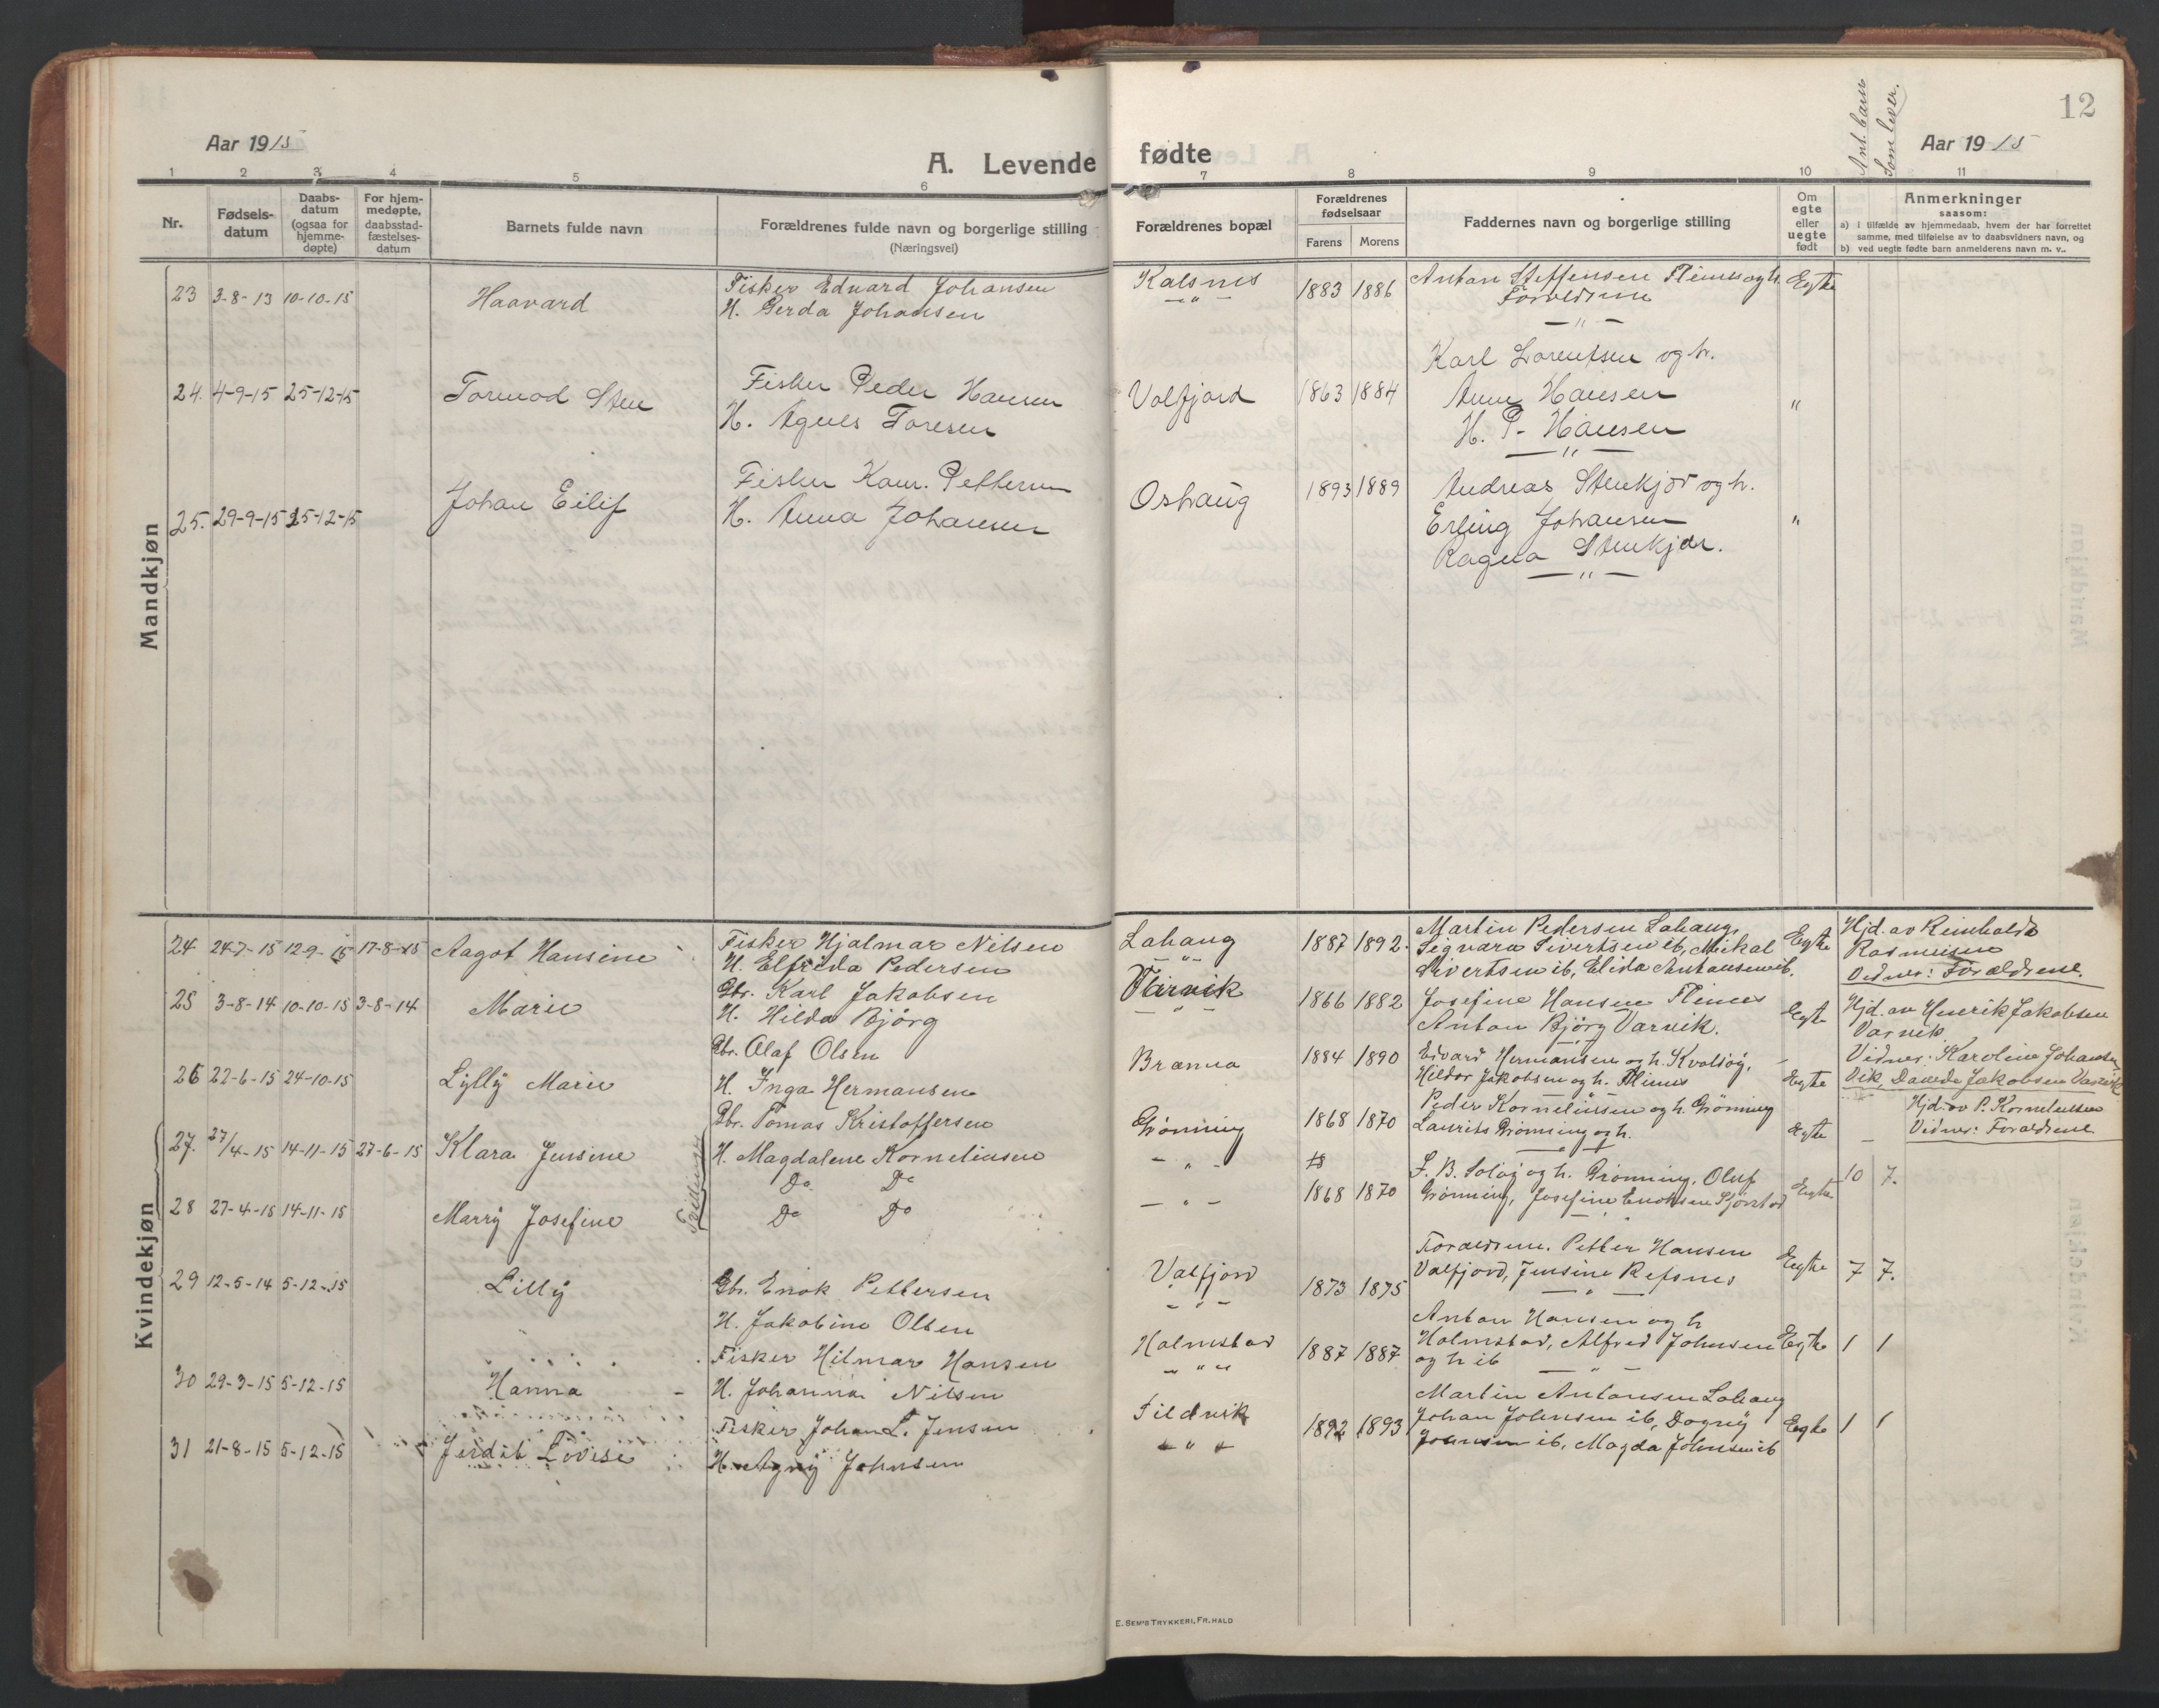 12
Aar 1915
A. Levende fødte
Ant. barn som lever.
Aar 1915
1 2 3 4 5 6 7 8 9 10 11
Nr.
Fødsels-datum
Daabs-datum (ogsaa for hjemme-døpte)
For hjem-medøpte, daabsstad-fæstelses-datum
Barnets fulde navn
Forældrenes fulde navn og borgerlige stilling
(Næringsvei)
Forældrenes bopæl
Forældrenes fødselsaar
Farens Morens
Faddernes navn og borgerlige stilling
Om egte eller uegte født
Anmerkninger
saasom:
a) i tilfælde av hjemmedaab, hvem der har forrettet
samme, med tilføielse av to daabsvidners navn, og
b) ved uegte fødte barn anmelderens navn m. v..
Mandkjøn
23 3-8-13 10-10-15 Haavard
Fisker Edvard Johansen
H. Gerda Johansen
Kalsnes
— " —
1883 1886
Anton Steffensen Flines og h.
Foreldrene
— " —
Egte
24. 4-9-15 25-12-15 Tormod Sten
Fisker Peder Hansen
H. Agnes Toresen
Valfjord
1863 1884
Karl Lorentsen og h.
Anna Hansen
H. P. Hansen
— " —
"
25. 29-9-15 25-12-15 Johan Eilif
Fisker Petterсen
H. Anna Johansen
Oshaug
1893 1889
Andreas Stenkjær og h.
Erling Johansen
Ragna Stenkjær.
— " —
"
Kvindekjøn
24 24-7-15 12-9-15 17-8-15 Aagot Hansine
Fisker Hjalmar Nilsen
H. Elfrida Pedersen
Lahaug
— " —
1887 1892.
Martin Pedersen Lahaug,
Signara Sivertsen ib, Mikal
Sivertsen ib, Elida Antonsen ib.
Egte
Hjd. av Reinholdt
Rasmussen
Vidner: Forældrene.
25 3-8-14 10-10-15 3-8-14 Marie
Gbr. Karl Jakobsen
H. Hilda Björg
Varvik
— " —
1866 1882
Josefine Hansen Flines
Anton Björg Varvik.
Egte
Hjd. av Henrik Jakobsen
Varvik
Vidner: Karoline Johansen
Vik, Jakobsen Varvik
26 22-6-15 24-10-15 Lylly Marie
Gbr. Olaf Olsen
H. Inga Hermansen
Brænna
1884 1890
Edvard Hermansen og h. Kvalsöy,
Hildor Jakobsen og h. Flines
Egte
27. 27/4-15 14-11-15 27-6-15 Klara Jensine
Tvillinger
Gbr. Tomas Kristoffersen
H. Magdalene Korneliusen
Do Do
Grönning
— " —
1868 1870
Peder Korneliusen og h. Grönning
Laurits Grönning og h.
Egte
—
Hjd. av P. Korneliussen
Vidner: Forældrene
28 27-4-15 14-11-15 Marry Josefine
Do Do
— " —
1868 1870
F. B. Solöj og h. Grönning, Oluf
Grönning, Josefine Enoksen Sjörstad
Egte
10 7.
29 12-5-14 5-12-15 Lilly
Gbr. Enok Pettersen
H. Jakobine Olsen
Valfjord
— " —
1873 1875
Forældrene. Petter Hansen
Valfjord, Jensine Refsnes
— " —
Egte
7 7.
30 29-3-15 5-12-15 Hanna
Fisker Hilmar Hansen
H. Johanna Nilsen
Holmstad
— " —
1887 1887
Anton Hansen og h
Holmstad, Alfred Johnsen
og h ib
— " —
Egte
1 1
31 21-8-15 5-12-15 Jerdit Lovise
Fisker Johan L. Jensen
H. Agny Johnsen
Sildvik
— " —
1892 1893
Martin Antonsen Lahaug
Johan Johnsen ib, Dagny
Johnsen ib, Magda Johnsen ib
Egte
1 1
E. SEM'S TRYKKERI, FR.HALD